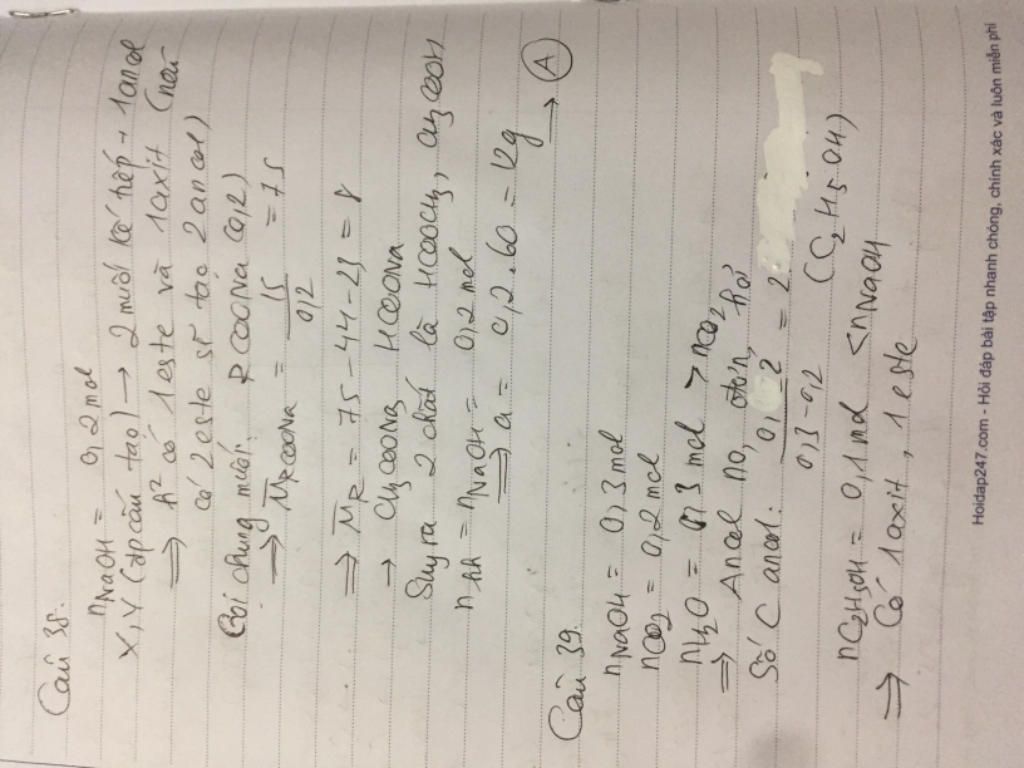 Câu 38.
nNaOH = 0,2 mol
X, Y (đp cấu tạo) → 2 muối kế tiếp + 1 ancol
⇒ h² có 1 este và 1 axit (nếu
có 2 este sẽ tạo 2 ancol)
Gọi chung muối: RCOONa (0,2)
→ M̅RCOONa = 15/0,2 = 75
⇒ M̅R = 75 - 44 - 23 = 8
→ CH3COONa HCOONa
Suy ra 2 chất là HCOOCH3, CH3COOH
nhh = nNaOH = 0,2 mol
⇒ a = 0,2.60 = 12g → A
Câu 39.
nNaOH = 0,3 mol
nCO2 = 0,2 mol
nH2O = 0,3 mol > nCO2
⇒ Ancol no, đơn, hở
Số C ancol: 0,2/0,3-0,2 = 2.
(C2H5OH)
nC2H5OH = 0,1 mol < nNaOH
⇒ Có 1 axit, 1 este
Hoidap247.com - Hỏi đáp bài tập nhanh chóng, chính xác và luôn miễn phí